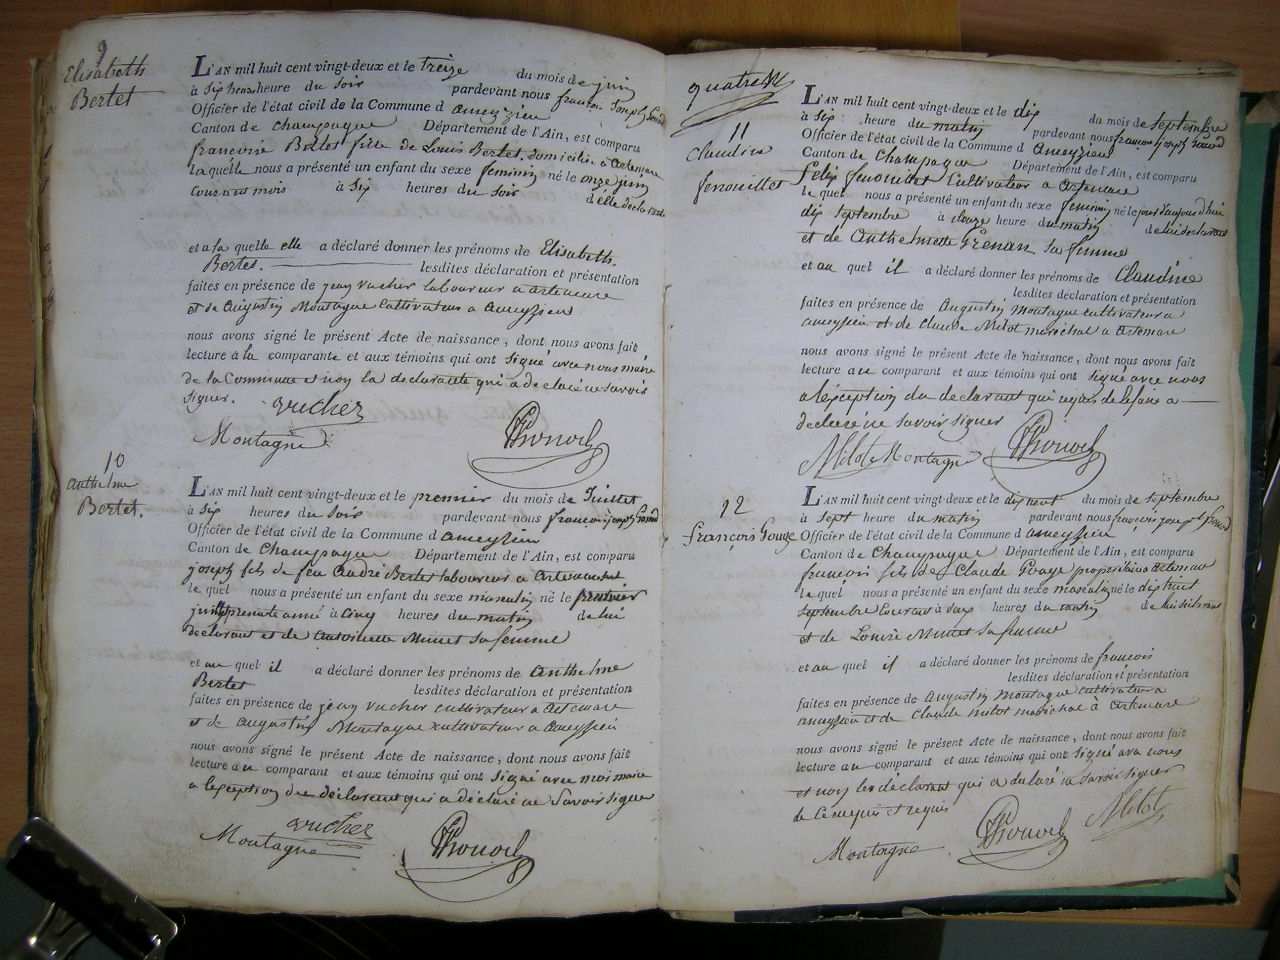 9
Elisabeth
Bertet
L'AN mil huit cent vingt-deux et le treize du mois de juin
à six heures heure du soir pardevant nous françois Joseph
Officier de l'état civil de la Commune d'ameyzieu
Canton de Champagne Département de l'Ain, est comparu
francoise Bertet fille de Louis Bertet domiciliée a artemare
laquelle nous a présenté un enfant du sexe feminin né le onze juin
courant mois à six heures du soir d'elle déclarante
et a la quelle elle a déclaré donner les prénoms de Elisabeth
Bertet. lesdites déclaration et présentation
faites en présence de jean vucher laboureur a artemare
et de augustin Montagne Cultivateur a ameyzieu
nous avons signé le présent Acte de naissance, dont nous avons fait
lecture à la comparante et aux témoins qui ont signé avec nous maire
de la Commune et non la declarante qui a declaré ne savoir
signer. vucher
Montagne
10
anthelme
Bertet.
L'AN mil huit cent vingt-deux et le premier du mois de Juillet
à six heures du soir pardevant nous francois joseph
Officier de l'état civil de la Commune d'ameyzieu
Canton de Champagne Département de l'Ain, est comparu
joseph fils de feu andré Bertet laboureur a artemare
le quel nous a présenté un enfant du sexe masculin né le premier
juillet presente année à cinq heures du matin de lui
declarant et de antoinette Minet sa femme
et au quel il a déclaré donner les prénoms de anthelme
Bertet lesdites déclaration et présentation
faites en présence de jean vucher cultivateur a artemare
et de augustin Montagne cultivateur a ameyzieu
nous avons signé le présent Acte de naissance, dont nous avons fait
lecture au comparant et aux témoins qui ont signé avec moi maire
a l'exception du déclarant qui a déclaré ne savoir signer
vucher
Montagne
quatre
11
Claudine
fenouillet
L'AN mil huit cent vingt-deux et le dix du mois de septembre
à six heure du matin pardevant nous françois joseph
Officier de l'état civil de la Commune d'ameyzieu
Canton de Champagne Département de l'Ain, est comparu
felix fenouillet Cultivateur a artemare
le quel nous a présenté un enfant du sexe feminin né le jour d'aujourd'hui
dix septembre à douze heure du matin de lui declarant
et de anthelmette Grenan sa femme
et au quel il a déclaré donner les prénoms de Claudine
lesdites déclaration et présentation
faites en présence de augustin montagne cultivateur a
ameyzieu et de Claude Melot maréchal a artemare
nous avons signé le présent Acte de naissance, dont nous avons fait
lecture au comparant et aux témoins qui ont signé avec nous
a l'exception du declarant qui requis de le faire a
declaré ne savoir signer
Melot Montagne
12
françois Gouge
L'AN mil huit cent vingt-deux et le dix huit du mois de septembre
à sept heure du matin pardevant nous françois joseph
Officier de l'état civil de la Commune d'ameyzieu
Canton de Champagne Département de l'Ain, est comparu
francois fils de Claude Gouge propriétaire a artemare
le quel nous a présenté un enfant du sexe masculin né le dix huit
septembre courant à deux heures du matin de lui declarant
et de Louise Minet sa femme
et au quel il a déclaré donner les prénoms de francois
lesdites déclaration et présentation
faites en présence de augustin montagne cultivateur a
ameyzieu et de Claude melot maréchal à artemare
nous avons signé le présent Acte de naissance, dont nous avons fait
lecture au comparant et aux témoins qui ont signé avec nous
et non les déclarant qui a déclaré ne savoir signer
de ce enquis et requis
Melot
Montagne